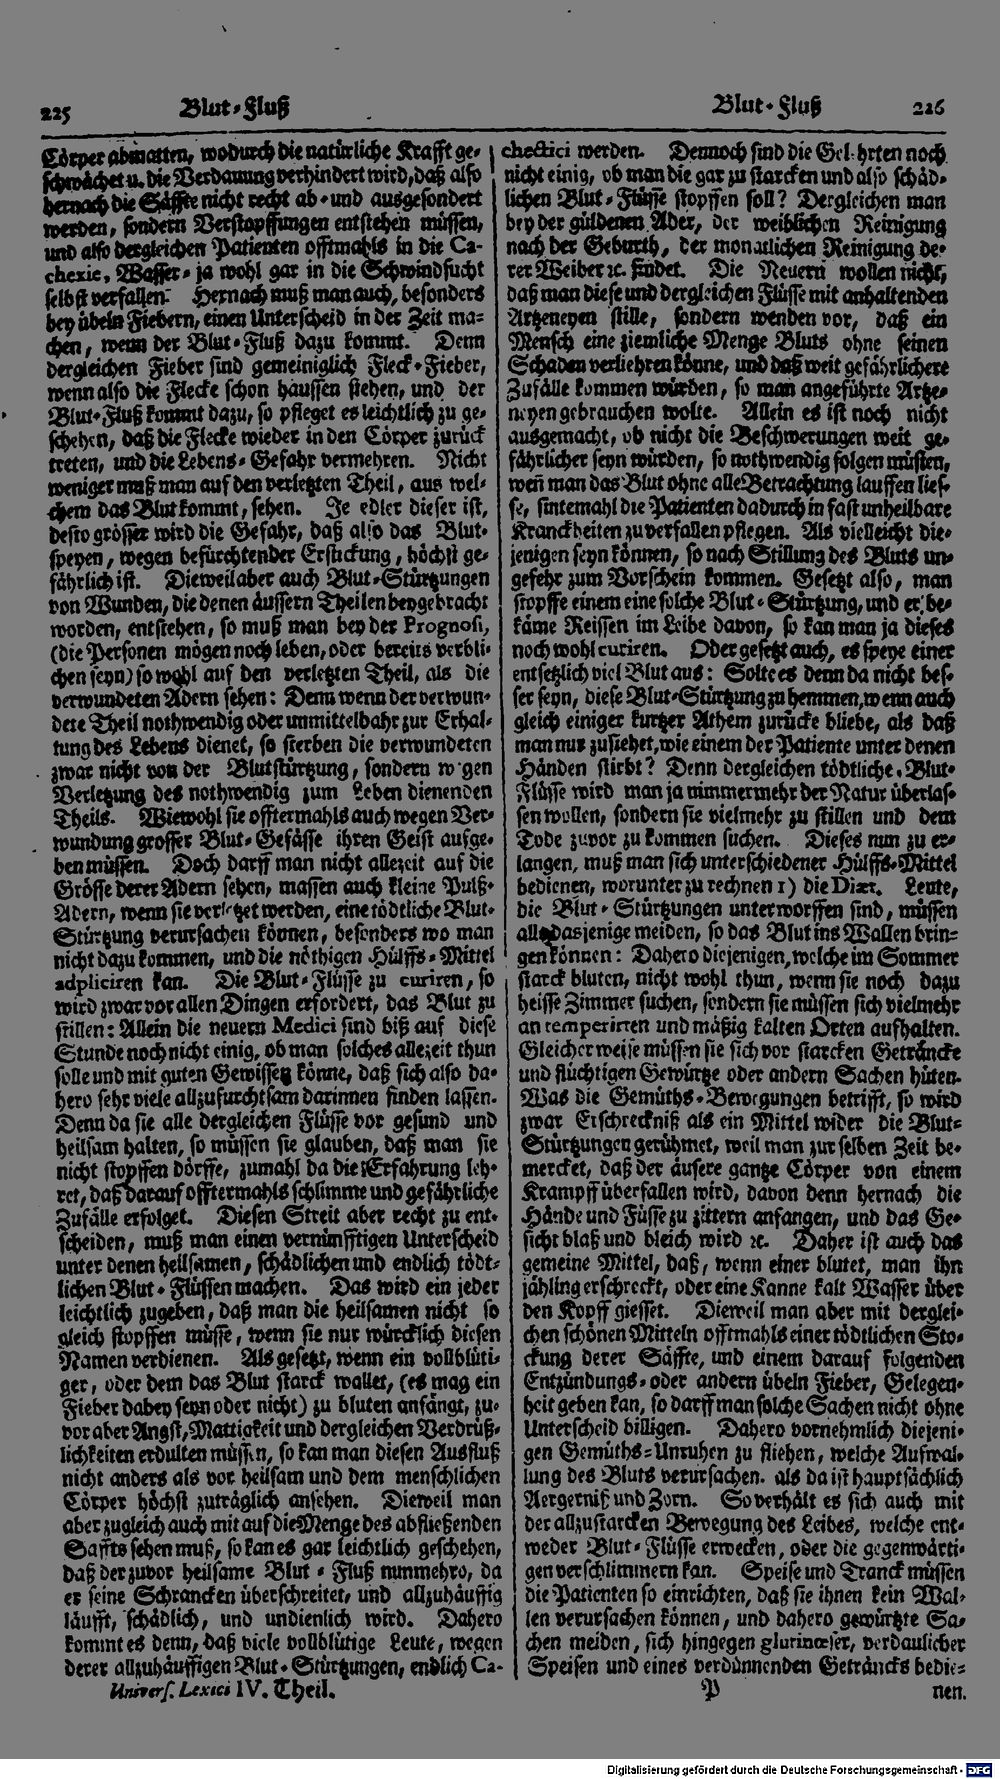 225 Blut-Fluß
Cörper abmatten, wodurch die natürliche Krafft ge-
schwächet u. die Verdauung verhindert wird, daß also
hernach die Säffte nicht recht ab- und ausgesondert
werden, sondern Verstopffungen entstehen müssen,
und also dergleichen Patienten offtmahls in die Ca-
chexie, Wasser- ja wohl gar in die Schwindsucht
selbst verfallen. Hernach muß man auch, besonders
bey übeln Fiebern, einen Unterscheid in der Zeit ma-
chen, wenn der Blut-Fluß dazu kommt. Denn
dergleichen Fieber sind gemeiniglich Fleck-Fieber,
wenn also die Flecke schon haussen stehen, und der
Blut-Fluß kommt dazu, so pfleget es leichtlich zu ge-
schehen, daß die Flecke wieder in den Cörper zurück
treten, und die Lebens-Gefahr vermehren. Nicht
weniger muß man auf den verletzten Theil, aus wel-
chem das Blut kommt, sehen. Je edler dieser ist,
desto grösser wird die Gefahr, daß also das Blut-
speyen, wegen befürchtender Erstickung, höchst ge-
fährlich ist. Dieweil aber auch Blut-Stürtzungen
von Wunden, die denen äussern Theilen beygebracht
worden, entstehen, so muß man bey der Prognosi,
(die Personen mögen noch leben, oder bereits verbli-
chen seyn) so wohl auf den verletzten Theil, als die
verwundeten Adern sehen: Denn wenn der verwun-
dete Theil nothwendig oder unmittelbahr zur Erhal-
tung des Lebens dienet, so sterben die verwundeten
zwar nicht von der Blutstürtzung, sondern wegen
Verletzung des nothwendig zum Leben dienenden
Theils. Wiewohl sie offtermahls auch wegen Ver-
wundung grosser Blut-Gefässe ihren Geist aufge-
ben müssen. Doch darff man nicht allezeit auf die
Grösse derer Adern sehen, massen auch kleine Pulß-
Adern, wenn sie verletzet werden, eine tödtliche Blut-
Stürtzung verursachen können, besonders wo man
nicht dazu kommen, und die nöthigen Hülffs-Mittel
adpliciren kan. Die Blut-Flüsse zu curiren, so
wird zwar vor allen Dingen erfordert, das Blut zu
stillen: Allein die neuern Medici sind biß auf diese
Stunde noch nicht einig, ob man solches allezeit thun
solle und mit guten Gewissen könne, daß sich also da-
hero sehr viele allzufurchtsam darinnen finden lassen.
Denn da sie alle dergleichen Flüsse vor gesund und
heilsam halten, so müssen sie glauben, daß man sie
nicht stopffen dörffe, zumahl da die Erfahrung leh-
ret, daß darauf offtermahls schlimme und gefährliche
Zufälle erfolget. Diesen Streit aber recht zu ent-
scheiden, muß man einen vernünfftigen Unterscheid
unter denen heilsamen, schädlichen und endlich tödt-
lichen Blut-Flüssen machen. Das wird ein jeder
leichtlich zugeben, daß man die heilsamen nicht so
gleich stopffen müsse, wenn sie nur würcklich diesen
Namen verdienen. Als gesetzt, wenn ein vollblüti-
ger, oder dem das Blut starck wallet, (es mag ein
Fieber dabey seyn oder nicht) zu bluten anfängt, zu-
vor aber Angst, Mattigkeit und dergleichen Verdrüß-
lichkeiten erdulten müssen, so kan man diesen Ausfluß
nicht anders als vor heilsam und dem menschlichen
Cörper höchst zuträglich ansehen. Dieweil man
aber zugleich auch mit auf die Menge des abfließenden
Saffts sehen muß, so kan es gar leichtlich geschehen,
daß der zuvor heilsame Blut-Fluß nunmehro, da
er seine Schrancken überschreitet, und allzuhäuffig
läufft, schädlich, und undienlich wird. Dahero
kommt es denn, daß viele vollblütige Leute, wegen
derer allzuhäuffigen Blut-Stürtzungen, endlich Ca-
Univers. Lexici IV. Theil.
Blut-Fluß 226
chectici werden. Dennoch sind die Gelehrten noch
nicht einig, ob man die gar zu starcken und also schäd-
lichen Blut-Flüsse stopffen soll? Dergleichen man
bey der güldenen Ader, der weiblichen Reinigung
nach der Geburth, der monatlichen Reinigung de-
rer Weiber ꝛc. findet. Die Neuern wollen nicht,
daß man diese und dergleichen Flüsse mit anhaltenden
Artzeneyen stille, sondern wenden vor, daß ein
Mensch eine ziemliche Menge Bluts ohne seinen
Schaden verliehren könne, und daß weit gefährlichere
Zufälle kommen würden, so man angeführte Artze-
neyen gebrauchen wolte. Allein es ist noch nicht
ausgemacht, ob nicht die Beschwerungen weit ge-
fährlicher seyn würden, so nothwendig folgen müsten,
weñ man das Blut ohne alle Betrachtung lauffen lies-
se, sintemahl die Patienten dadurch in fast unheilbare
Kranckheiten zu verfallen pflegen. Als vielleicht die-
jenigen seyn können, so nach Stillung des Bluts un-
gefehr zum Vorschein kommen. Gesetzt also, man
stopffe einem eine solche Blut-Stürtzung, und er be-
käme Reissen im Leibe davon, so kan man ja dieses
noch wohl curiren. Oder gesetzt auch, es speye einer
entsetzlich viel Blut aus: Solte es denn da nicht bes-
ser seyn, diese Blut-Stürtzung zu hemmen, wenn auch
gleich einiger kurtzer Athem zurücke bliebe, als daß
man nur zusiehet, wie einem der Patiente unter denen
Händen stirbt? Denn dergleichen tödtliche Blut-
Flüsse wird man ja nimmermehr der Natur überlas-
sen wollen, sondern sie vielmehr zu stillen und dem
Tode zuvor zu kommen suchen. Dieses nun zu er-
langen, muß man sich unterschiedener Hülffs-Mittel
bedienen, worunter zu rechnen 1) die Diæt. Leute,
die Blut-Stürtzungen unterworffen sind, müssen
alle dasjenige meiden, so das Blut ins Wallen brin-
gen können: Dahero diejenigen, welche im Sommer
starck bluten, nicht wohl thun, wenn sie noch dazu
heisse Zimmer suchen, sondern sie müssen sich vielmehr
an temperirten und mäßig kalten Orten aufhalten.
Gleicher weise müssen sie sich vor starcken Geträncke
und flüchtigen Gewürtze oder andern Sachen hüten.
Was die Gemüths-Bewegungen betrifft, so wird
zwar Erschreckniß als ein Mittel wider die Blut-
Stürtzungen gerühmet, weil man zur selben Zeit be-
mercket, daß der äusere gantze Cörper von einem
Krampff überfallen wird, davon denn hernach die
Hände und Füsse zu zittern anfangen, und das Ge-
sicht blaß und bleich wird ꝛc. Daher ist auch das
gemeine Mittel, daß, wenn einer blutet, man ihn
jähling erschreckt, oder eine Kanne kalt Wasser über
den Kopff giesset. Dieweil man aber mit derglei-
chen schönen Mitteln offtmahls einer tödtlichen Sto-
ckung derer Säffte, und einem darauf folgenden
Entzündungs- oder andern übeln Fieber, Gelegen-
heit geben kan, so darff man solche Sachen nicht ohne
Unterscheid billigen. Dahero vornehmlich diejeni-
gen Gemüths-Unruhen zu fliehen, welche Aufwal-
lung des Bluts verursachen. als da ist hauptsächlich
Aergerniß und Zorn. So verhält es sich auch mit
der allzustarcken Bewegung des Leibes, welche ent-
weder Blut-Flüsse erwecken, oder die gegenwärti-
gen verschlimmern kan. Speise und Tranck müssen
die Patienten so einrichten, daß sie ihnen kein Wal-
len verursachen können, und dahero gewürtzte Sa-
chen meiden, sich hingegen glutinœser, verdaulicher
Speisen und eines verdünnenden Geträncks bedie-
P nen.
Digitalisierung gefördert durch die Deutsche Forschungsgemeinschaft - DFG